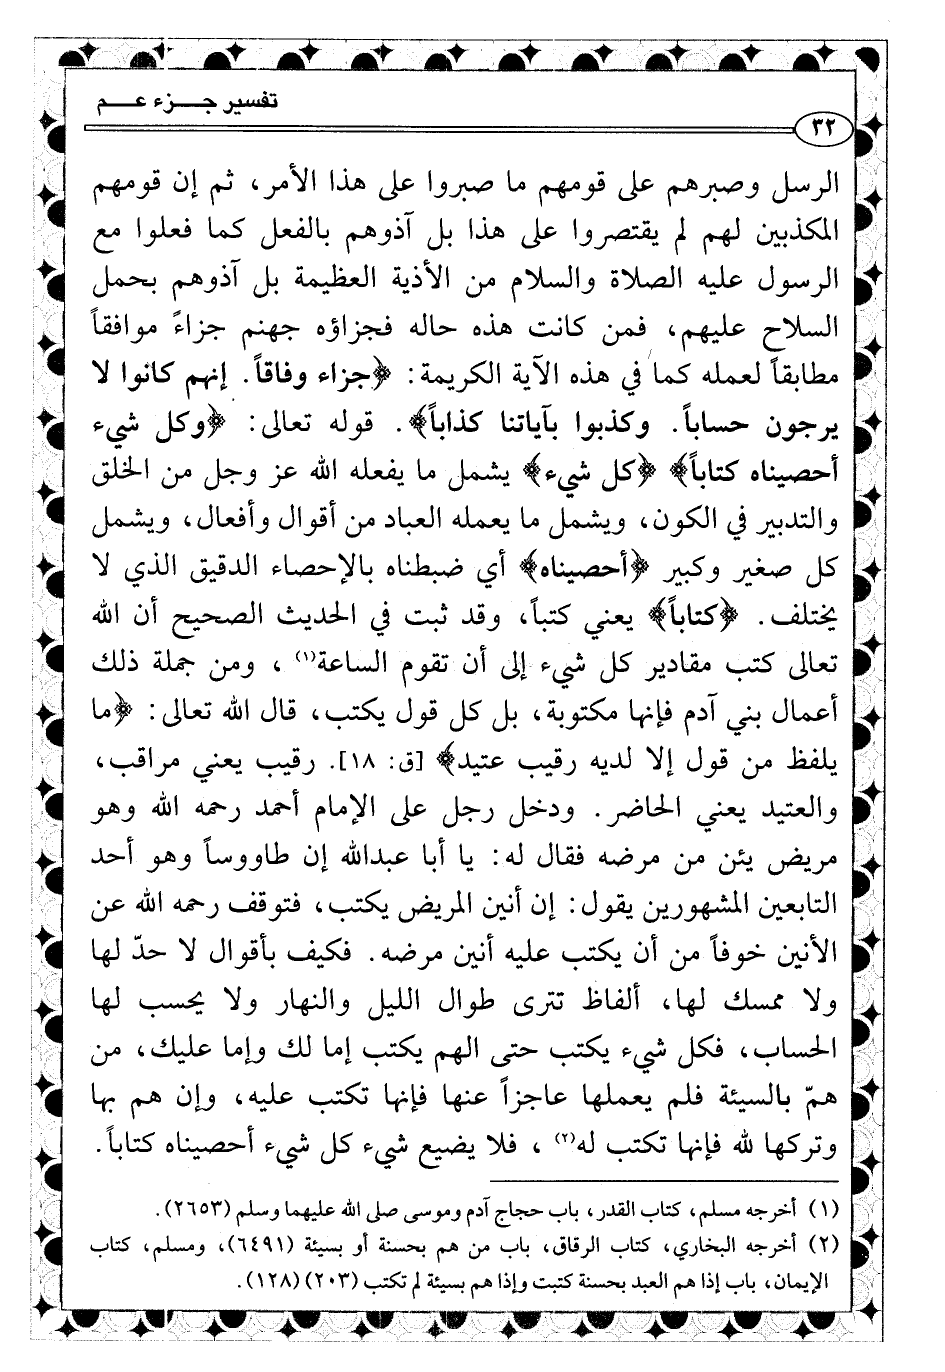 تفسير جـــزء عـــم
٣٢
الرسل وصبرهم على قومهم ما صبروا على هذا الأمر، ثم إن قومهم
المكذبين لهم لم يقتصروا على هذا بل آذوهم بالفعل كما فعلوا مع
الرسول عليه الصلاة والسلام من الأذية العظيمة بل آذوهم بحمل
السلاح عليهم، فمن كانت هذه حاله فجزاؤه جهنم جزاءً موافقاً
مطابقاً لعمله كما في هذه الآية الكريمة: ﴿جزاء وفاقاً. إنهم كانوا لا
يرجون حساباً. وكذبوا بآياتنا كذاباً﴾. قوله تعالى: ﴿وكل شيء
أحصيناه كتاباً﴾ ﴿كل شيء﴾ يشمل ما يفعله الله عز وجل من الخلق
والتدبير في الكون، ويشمل ما يعمله العباد من أقوال وأفعال، ويشمل
كل صغير وكبير ﴿أحصيناه﴾ أي ضبطناه بالإحصاء الدقيق الذي لا
يختلف. ﴿كتاباً﴾ يعني كتباً، وقد ثبت في الحديث الصحيح أن الله
تعالى كتب مقادير كل شيء إلى أن تقوم الساعة(١)، ومن جملة ذلك
أعمال بني آدم فإنها مكتوبة، بل كل قول يكتب، قال الله تعالى: ﴿ما
يلفظ من قول إلا لديه رقيب عتيد﴾ [ق: ١٨]. رقيب يعني مراقب،
والعتيد يعني الحاضر. ودخل رجل على الإمام أحمد رحمه الله وهو
مريض يئن من مرضه فقال له: يا أبا عبدالله إن طاووساً وهو أحد
التابعين المشهورين يقول: إن أنين المريض يكتب، فتوقف رحمه الله عن
الأنين خوفاً من أن يكتب عليه أنين مرضه. فكيف بأقوال لا حدّ لها
ولا ممسك لها، ألفاظ تترى طوال الليل والنهار ولا يحسب لها
الحساب، فكل شيء يكتب حتى الهم يكتب إما لك وإما عليك، من
همّ بالسيئة فلم يعملها عاجزاً عنها فإنها تكتب عليه، وإن هم بها
وتركها لله فإنها تكتب له(٢)، فلا يضيع شيء كل شيء أحصيناه كتاباً.
(١) أخرجه مسلم، كتاب القدر، باب حجاج آدم وموسى صلى الله عليهما وسلم (٢٦٥٣).
(٢) أخرجه البخاري، كتاب الرقاق، باب من هم بحسنة أو بسيئة (٦٤٩١)، ومسلم، كتاب
الإيمان، باب إذا هم العبد بحسنة كتبت وإذا هم بسيئة لم تكتب (٢٠٣) (١٢٨).